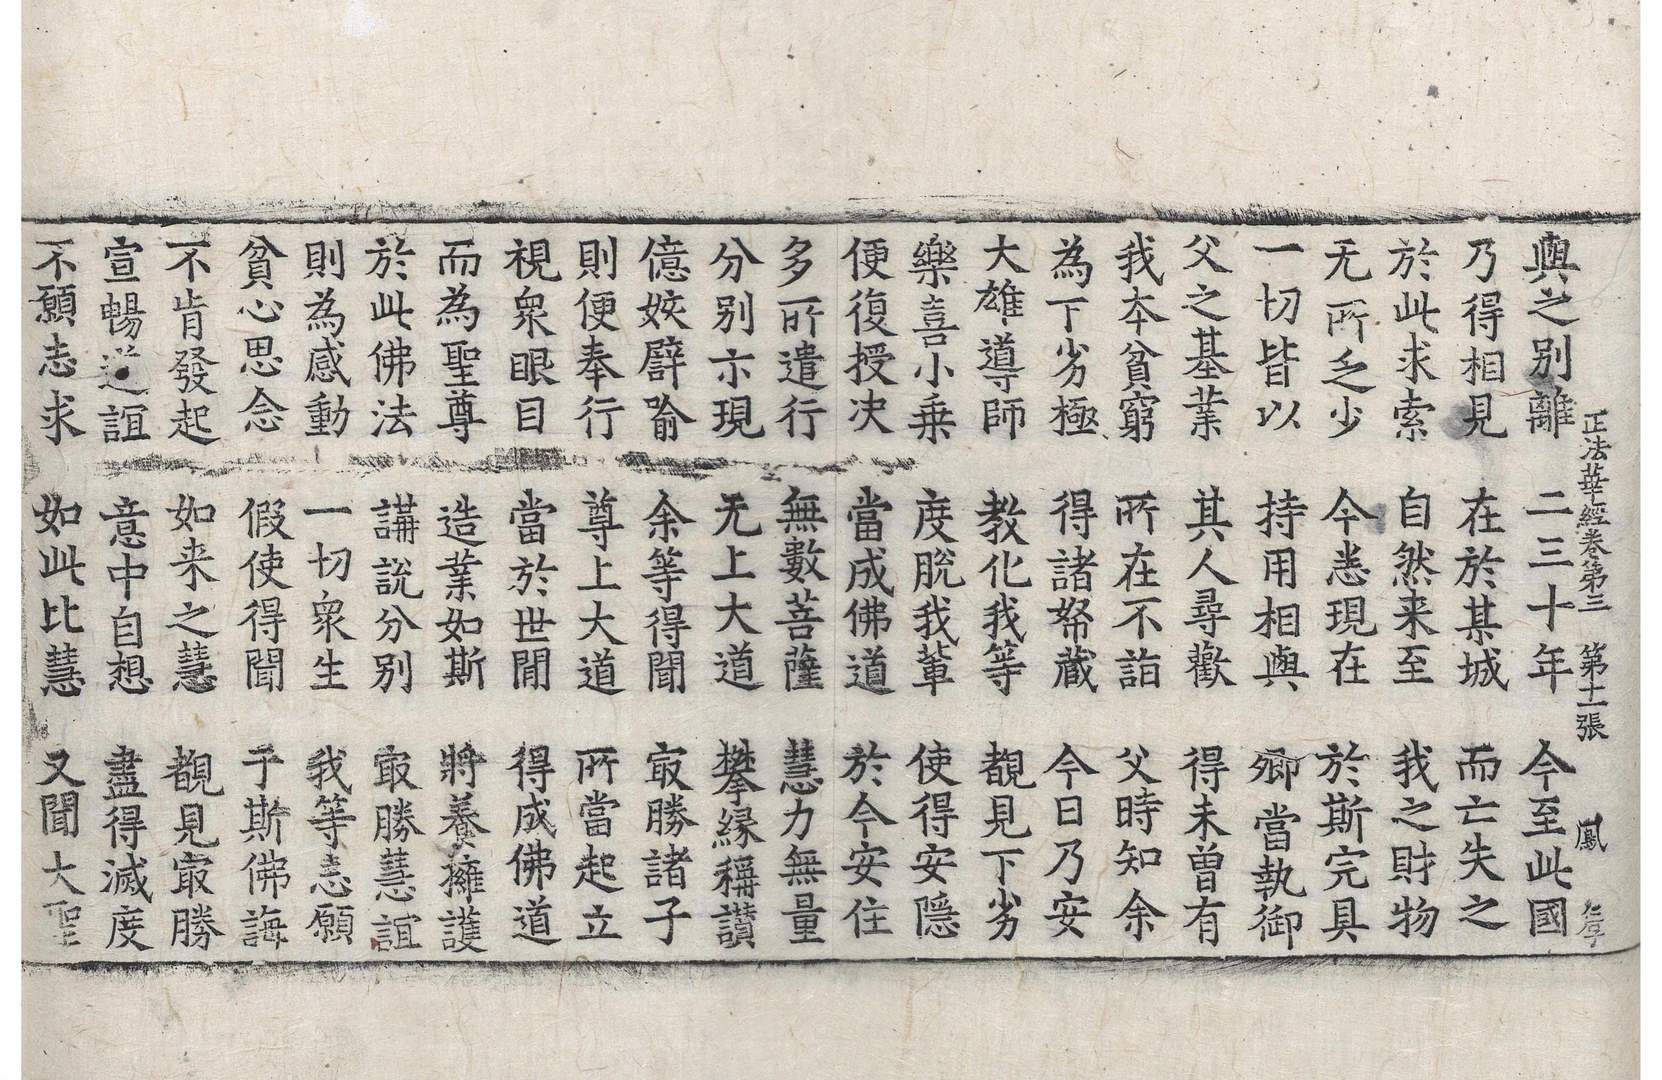 正法華經卷第三　第十一張　鳳
與之別離　二三十年　今至此國
乃得相見　在於某城　而亡失之
於此求索　自然来至　我之財物
无所乏少　今悉現在　於斯完具
一切皆以　持用相與　卿當執御
父之基業　其人尋歡　得未曽有
我夲貧窮　所在不詣　父時知余
為下劣極　得諸帑藏　今日乃安
大雄導師　教化我等　覩見下劣
樂喜小乗　度脫我軰　使得安隱
便復授决　當成佛道　於今安住
多所遣行　無數菩薩　慧力無量
分別示現　无上大道　攀緣稱讃
億姟譬喻　余等得聞　㝡勝諸子
則便奉行　尊上大道　所當起立
視衆眼目　當於世閒　得成佛道
而為聖尊　造業如斯　將養擁護
於此佛法　講說分別　㝡勝慧誼
則為感動　一切衆生　我等志願
貧心思念　假使得聞　于斯佛誨
不肯發起　如来之慧　覩見㝡勝
宣暢道誼　意中自想　盡得滅度
不願志求　如此比慧　又聞大聖